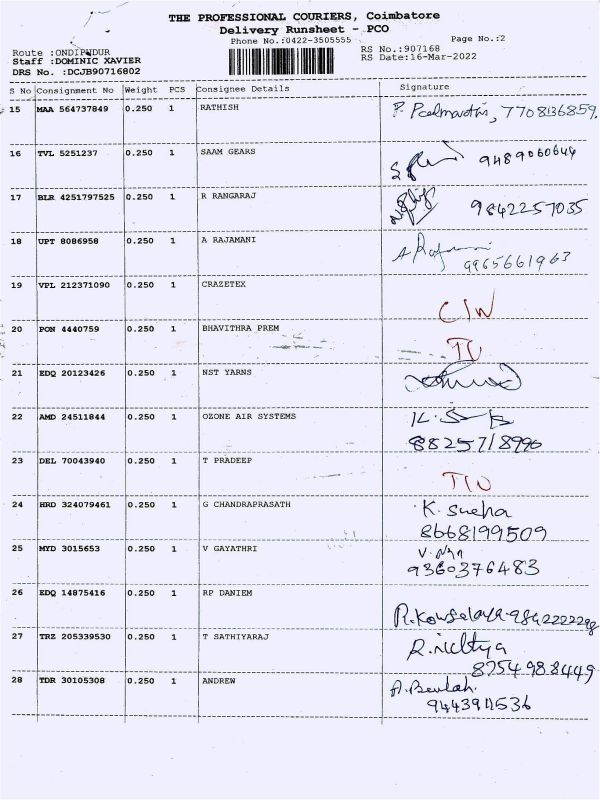 THE PROFESSIONAL COURIERS, Coimbatore
Delivery Runsheet - PCO
Phone No.:0422-3505555 Page No.:2
Route :ONDIPUDUR RS No.:907168
Staff :DOMINIC XAVIER RS Date:16-Mar-2022
DRS No. :DCJB90716802
S No Consignment No Weight PCS Consignee Details Signature
15 MAA 564737849 0.250 1 RATHISH 7708136859.
16 TVL 5251237 0.250 1 SAAM GEARS 9489060644
17 BLR 4251797525 0.250 1 R RANGARAJ 9842257035
18 UPT 8086958 0.250 1 A RAJAMANI
9965661963
19 VPL 212371090 0.250 1 CRAZETEX
20 PON 4440759 0.250 1 BHAVITHRA PREM
21 EDQ 20123426 0.250 1 NST YARNS
22 AMD 24511844 0.250 1 OZONE AIR SYSTEMS
8825718990
23 DEL 70043940 0.250 1 T PRADEEP
24 HRD 324079461 0.250 1 G CHANDRAPRASATH K. Sneha
8668199509
25 MYD 3015653 0.250 1 V GAYATHRI
9360376483
26 EDQ 14875416 0.250 1 RP DANIEM
R. Kowsalaya
27 TRZ 205339530 0.250 1 T SATHIYARAJ R. nithya
8754988449
28 TDR 30105308 0.250 1 ANDREW A. Beulah.